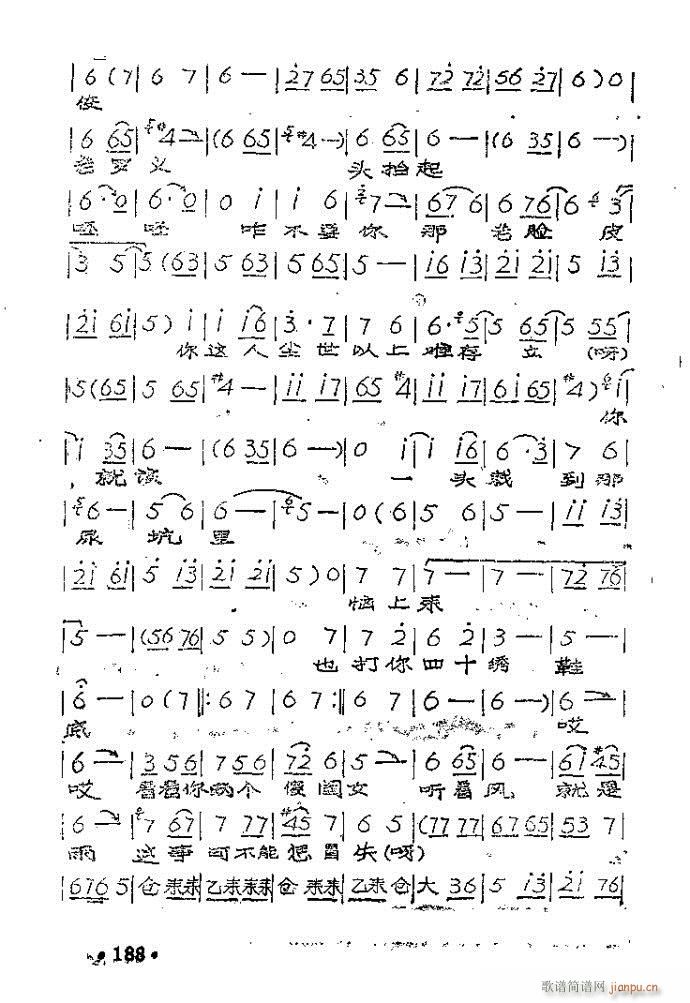 |6 (7|6 7|6 —|27 65|35 6|72 72|56 27|6 ) 0|
俊
|6 65|#4 —|(6 65|#4 —)|6 65|6 —|(6 35|6 —)|
老罗义 头抬起
|6·0|6·0|0 i|i 6|7 —|67 6|6 76|6 3|
呸 呸 咋不要你那老脸皮
|3 5|5 (63|5 63|5 65|5 —|i6 i3|2i 2i|5 i3|
|2i 6i|5 )i|i i6|3·7|7 6|6·5|5 65|5 55|
你这人尘世以上难存立(呀)
|5 (65|5 65|#4 —|ii i7|65 #4|ii i7|6i 65|#4 ) i|
你
|i 35|6 —|(6 35|6 —)|0 i|i i6|6·3|7 6|
就该 一头栽到那
|6 —|5 6|6 —|5 —|0 (6|5 6|5 —|ii i3|
尿坑里
|2i 6i|5 i3|2i 2i|5 ) 0|7 7|7 —|7 —|72 76|
恼上来
|5 —|(56 76|5 5)|0 7|7 2|6 2|3 —|5 —|
也打你四十绣鞋
|6 —|0 (7|:6 7|6 7:|6 7|6 —|6 —)|6 —|
底 哎
|6 —|3 56|7 56|72 6|5 —|6 65|6 —|6i #45|
哎 看看你两个傻闺女 听看风 就是
|6 —|7 67|7 77|#45 7|6 5|(77 77|67 65|53 7|
雨 这事可不能把冒失(呀)
|676 5|仓 来来|乙来来来|仓 来来|乙来 仓|大 36|5 i3|2i 76|
·188·
歌谱简谱网
jianpu.cn